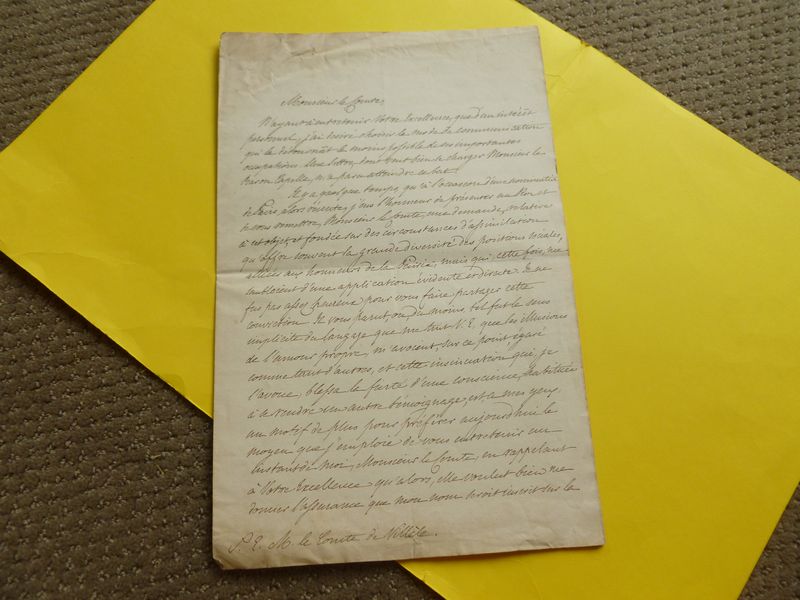 Monsieur le Comte,
N'ayant à entretenir Votre Excellence, que d'un intérêt
personnel, j'ai désiré choisir le mode de communication
qui la détournât le moins possible de ses importantes
occupations. Une lettre, dont veut bien se charger Monsieur le
Baron Capelle, m'a paru atteindre ce but.
Il y a quelque temps, qu'à l'occasion d'une nomination
de Pairs, alors récente, j'eus l'honneur de présenter au Roi et
de vous remettre, Monsieur le Comte, une demande, relative
à cet objet et fondée sur des circonstances d'assimilation
qu'offre souvent la grande diversité des positions sociales,
alliées aux honneurs de la Pairie, mais qui, cette fois, me
d'une application évidente et directe. Je ne
fus pas assez heureux pour vous faire partager cette
conviction. Je vous parus, ou, du moins, tel fut le sens
implicite du langage que me tint V. E. que les illusions
de l'amour propre, m'avoient, sur ce point égaré
comme tant d'autres, et cette insinuation qui, je
l'avoue, blessa la fierté d'une conscience, habituée
à se rendre un autre témoignage, est à mes yeux
un motif de plus pour préférer aujourdhui le
moyen que j'emploie de vous entretenir un
instant de moi, Monsieur le Comte, en rappelant
à Votre Excellence qu'alors, elle voulut bien me
donner l'assurance que mon nom seroit inscrit sur la
S. E. M. le Comte de Villèle.